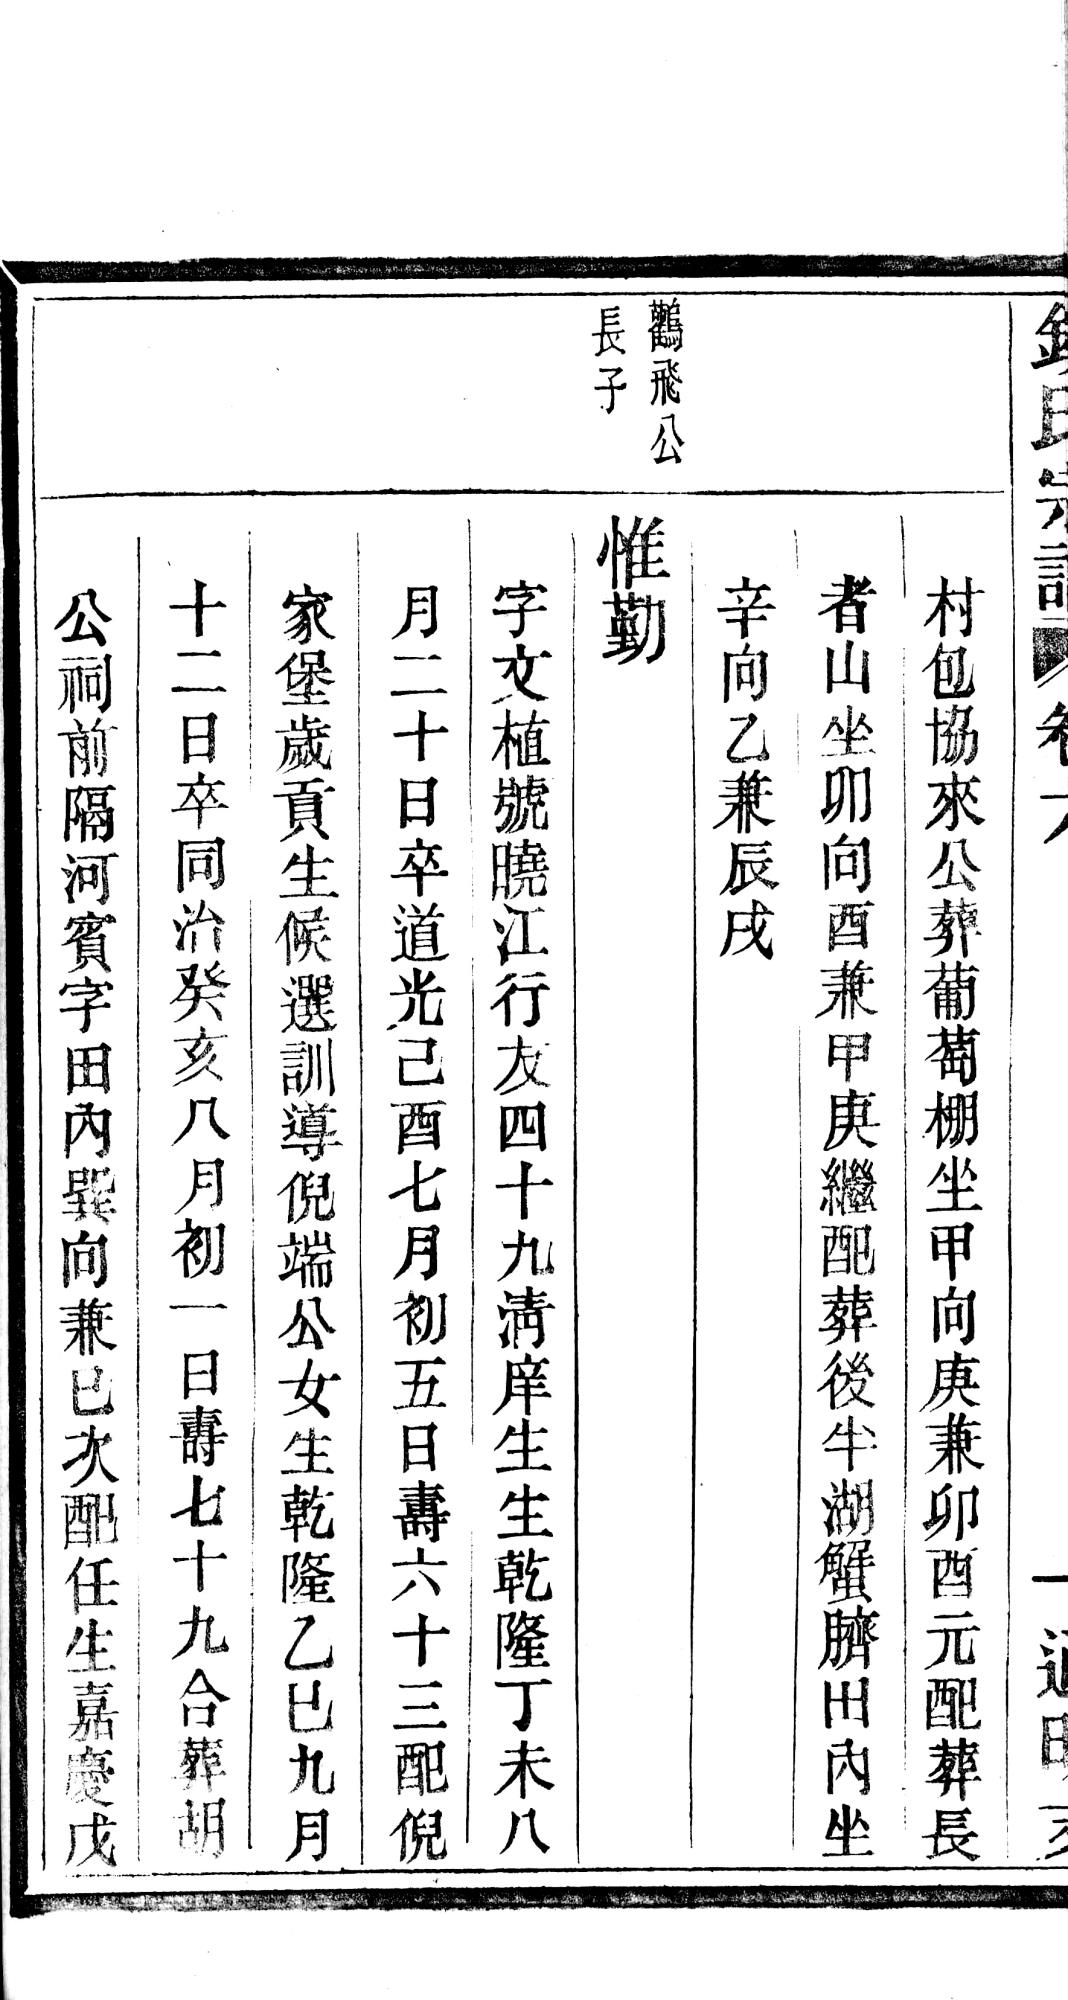 氏宗譜 卷六
村包協來公葬葡萄棚坐甲向庚兼卯酉元配葬長
者山坐卯向酉兼甲庚繼配葬後半湖蟹臍田內坐
辛向乙兼辰戌
鶴飛公
長子
惟勤
字文植號曉江行友四十九淸庠生生乾隆丁未八
月二十日卒道光己酉七月初五日壽六十三配倪
家堡歲貢生候選訓導倪端公女生乾隆乙巳九月
十二日卒同治癸亥八月初一日壽七十九合葬胡
公祠前隔河賓字田內巽向兼巳次配任生嘉慶戊